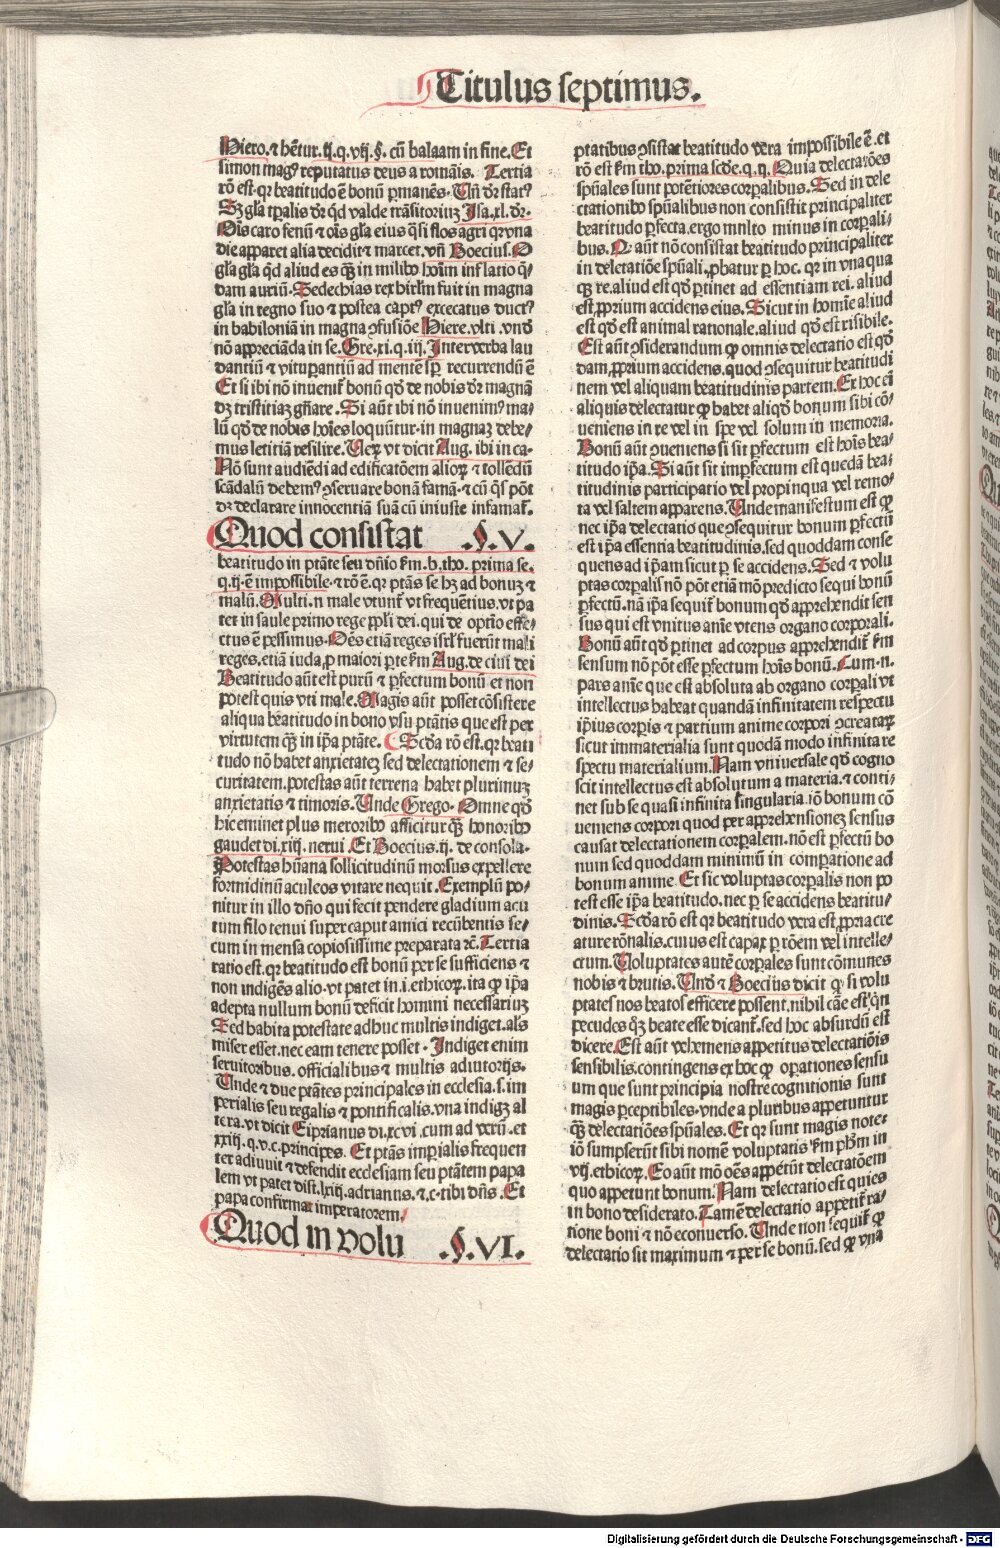 Titulus septimus.
Hiero. ⁊ hẽtur. ij. q. vij. §. cũ balaam in fine. Et
simon magꝰ reputatus deus a romãis. Tertia
rõ est. qꝛ beatitudo ẽ bonũ ꝑmanẽs. Uñ dꝛ statꝰ
Sꝫ gl̃a tꝑalis dꝛ qd̃ valde trãsitoriuꝫ Isa. xl. dꝛ.
Oĩs caro fenũ ⁊ oĩs gl̃a eius q̃si flos agri qꝛ vna
die apparet alia decidit ⁊ marcet. vñ Boecius. O
gl̃a gl̃a qd̃ aliud es qꝫ̃ in milibꝰ hoĩm inflatio q̃
dam auriũ. Sedechias rex hirl̃m fuit in magna
gl̃a in regno suo ⁊ postea captꝰ excecatus ductꝰ
in babiloniã in magna ꝯfusiõe Hiere. vlti. vnd̃
nõ appreciãda in se. Gre. xi. q. iij. Inter verba lau
dantiũ ⁊ vituꝑantiũ ad mentẽ sꝑ recurrendũ ẽ
Et si ibi nõ inuenit̃ bonũ qd̃ de nobis dꝛ magnã
dꝫ tristitiaꝫ gñare. Si aũt ibi nõ inuenimꝰ ma⸗
lũ qd̃ de nobis hoĩes loquũtur. in magnaꝫ debe⸗
mus letitiã resilire. Ueꝝ vt dicit Aug. ibi in ca.
Nõ sunt audiẽdi ad edificatõem alioꝝ ⁊ tollẽdũ
scãdalũ debemꝰ ꝯseruare bonã famã. ⁊ cũ q̃s põt
dꝫ declarare innocentiã suã cũ iniuste infamat̃.
Quod consistat .§.V.
beatitudo in ptãte seu dñio ẜm. b. tho. prima se.
q. ij. ẽ impossibile. ⁊ rõ ẽ. qꝛ ptãs se hꝫ ad bonuꝫ ⁊
malũ. Multi. n male vtunt̃ vt frequẽtius. vt pa
tet in saule primo rege ppl̃i dei. qui de optĩo effe⸗
ctus ẽ pessimus. Oẽs etiã reges isrl̃ fuerũt mali
reges. etiã iuda, ꝓ maiori ꝑte ẜm Aug. de ciui dei
Beatitudo aũt est purũ ⁊ ꝑfectum bonũ et non
potest quis vti male. Magis aũt posset cõsistere
aliqua beatitudo in bono vsu ptãtis que est per
virtutem qꝫ̃ in ip̃a ptãte. Scd̃a rõ est. qꝛ beati
tudo nõ habet anxietateꝫ sed delectationem ⁊ se⸗
curitatem. potestas aũt terrena habet plurimuꝫ
anxietatis ⁊ timoris. Unde Grego. Omne qd̃
hic eminet plus meroribꝰ afficitur qꝫ̃ honoribꝰ
gaudet di. xiij. nerui. Et Boecius. ij. de consola.
Potestas hũana sollicitudinũ morsus expellere
formidinũ aculeos vitare nequit. Exemplũ po⸗
nitur in illo dño qui fecit pendere gladium acu
tum filo tenui super caput amici recũbentis se⸗
cum in mensa copiosissime preparata ⁊c. Tertia
ratio est. qꝛ beatitudo est bonũ per se sufficiens ⁊
non indigẽs alio. vt patet in. i. ethicoꝝ. ita ꝙ ip̃a
adepta nullum bonũ deficit homini necessariuꝫ
Sed habita potestate adhuc multis indiget. al̃s
miser esset. nec eam tenere posset. Indiget enim
seruitoribus. officialibus ⁊ multis adiutorijs.
Unde ⁊ due ptãtes principales in ecclesia. s. im
perialis seu regalis ⁊ pontificalis. vna indigꝫ al
tera. vt dicit Ciprianus di. xcvi. cum ad verũ. et
xxiij. q. v. c. principes. Et ptãs imꝑialis frequen
ter adiuuit ⁊ defendit ecclesiam seu ptãtem papa
lem vt patet dist. lxiij. adrianus. ⁊. c. tibi dñs. Et
papa confirmat imperatorem.
Quod in volu .§.VI.
ptatibus ꝯsistat beatitudo vera impossibile ẽ. et
rõ est ẜm tho. prima scd̃e. q. ij. Quia delectatões
sp̃uales sunt potẽtiores corꝑalibus. Sed in dele
ctationibꝰ sp̃ualibus non consistit principaliter
beatitudo ꝑfecta. ergo mnlto minus in corꝑali⸗
bus. Ꝙ aũt nõ consistat beatitudo principaliter
in delectatiõe sp̃uali, ꝓbatur ꝑ hoc. qꝛ in vna qua
qꝫ re. aliud est qd̃ ꝑtinet ad essentiam rei. aliud
est, ꝓprium accidens eius. Sicut in homĩe aliud
est qd̃ est animal rationale. aliud qd̃ est risibile.
Est aũt ꝯsiderandum ꝙ omnis delectatio est qd̃
dam, ꝓprium accidens. quod ꝯsequitur beatitudi
nem vel aliquam beatitudinis partem. Ex hoc ẽi
aliquis delectatur ꝙ habet aliqd̃ bonum sibi cõ⸗
ueniens in re vel in spe vel solum in memoria.
Bonũ aũt ꝯueniens si sit ꝑfectum est hoĩs bea⸗
titudo ip̃a. Si aũt sit imꝑfectum est quedã bea⸗
titudinis participatio vel propinqua vel remo⸗
ta vel saltem apparens. Unde manifestum est ꝙ
nec ip̃a delectatio que ꝯsequitur bonum ꝑfectũ
est ip̃a essentia beatitudinis. sed quoddam conse
quens ad ip̃am sicut ꝑ se accidens. Sed ⁊ volu
ptas corꝑalis nõ põt etiã mõ predicto sequi bonũ
ꝑfectũ. nã ip̃a sequit̃ bonum qd̃ apprehendit sen
sus qui est vnitus anĩe vtens organo corporali.
Bonũ aũt qd̃ ꝑtinet ad corpus apprehendit̃ ẜm
sensum nõ põt esse ꝑfectum hoĩs bonũ. Cum. n.
pars anĩe que est absoluta ab organo corꝑali vt
intellectus habeat quandã infinitatem respectu
ip̃ius corꝑis ⁊ partium anime corpori ꝯcreataꝝ
sicut immaterialia sunt quodã modo infinita re
spectu materialium. Nam vniuersale qd̃ cogno
scit intellectus est absolutum a materia. ⁊ conti⸗
net sub se quasi infinita singularia. iõ bonum cõ
ueniens corpori quod per apprehensioneꝫ sensus
causat delectationem corꝑalem. nõ est ꝑfectũ bo
num sed quoddam minimũ in comꝑatione ad
bonum anime. Et sic voluptas corꝑalis non po
test esse ip̃a beatitudo. nec ꝑ se accidens beatitu⸗
dinis. Scd̃a rõ est qꝛ beatitudo vera est, ꝓpria cre
ature rõnalis. cuius est capax ꝑ rõem vel intelle⸗
ctum. Uoluptates autẽ corꝑales sunt cõmunes
nobis ⁊ brutis. Und̃ ⁊ Boecius dicit ꝙ si volu
ptates nos beatos efficere possent. nihil cãe est. q̃n
pecudes qꝫ beate esse dicant̃. sed hoc absurdũ est
dicere. Est aũt vehemens appetitus delectatiõis
sensibilis. contingens ex hoc ꝙ oꝑationes sensu
um que sunt principia nostre cognitionis sunt
magis ꝑceptibiles. vnde a pluribus appetuntur
qꝫ̃ delectatiões sp̃uales. Et qꝛ sunt magis note.
iõ sumpserũt sibi nomẽ voluptatis ẜm ph̃m in
vij. ethicoꝝ. Eo aũt mõ oẽs appetũt delectatõem
quo appetunt bonum. Nam delectatio est quies
in bono desiderato. Tamẽ delectatio appetit̃ ra⸗
tione boni ⁊ nõ econuerso. Unde non sequit̃ ꝙ
delectatio sit maximum ⁊ per se bonũ. sed ꝙ vna
Digitalisierung gefördert durch die Deutsche Forschungsgemeinschaft - DFG